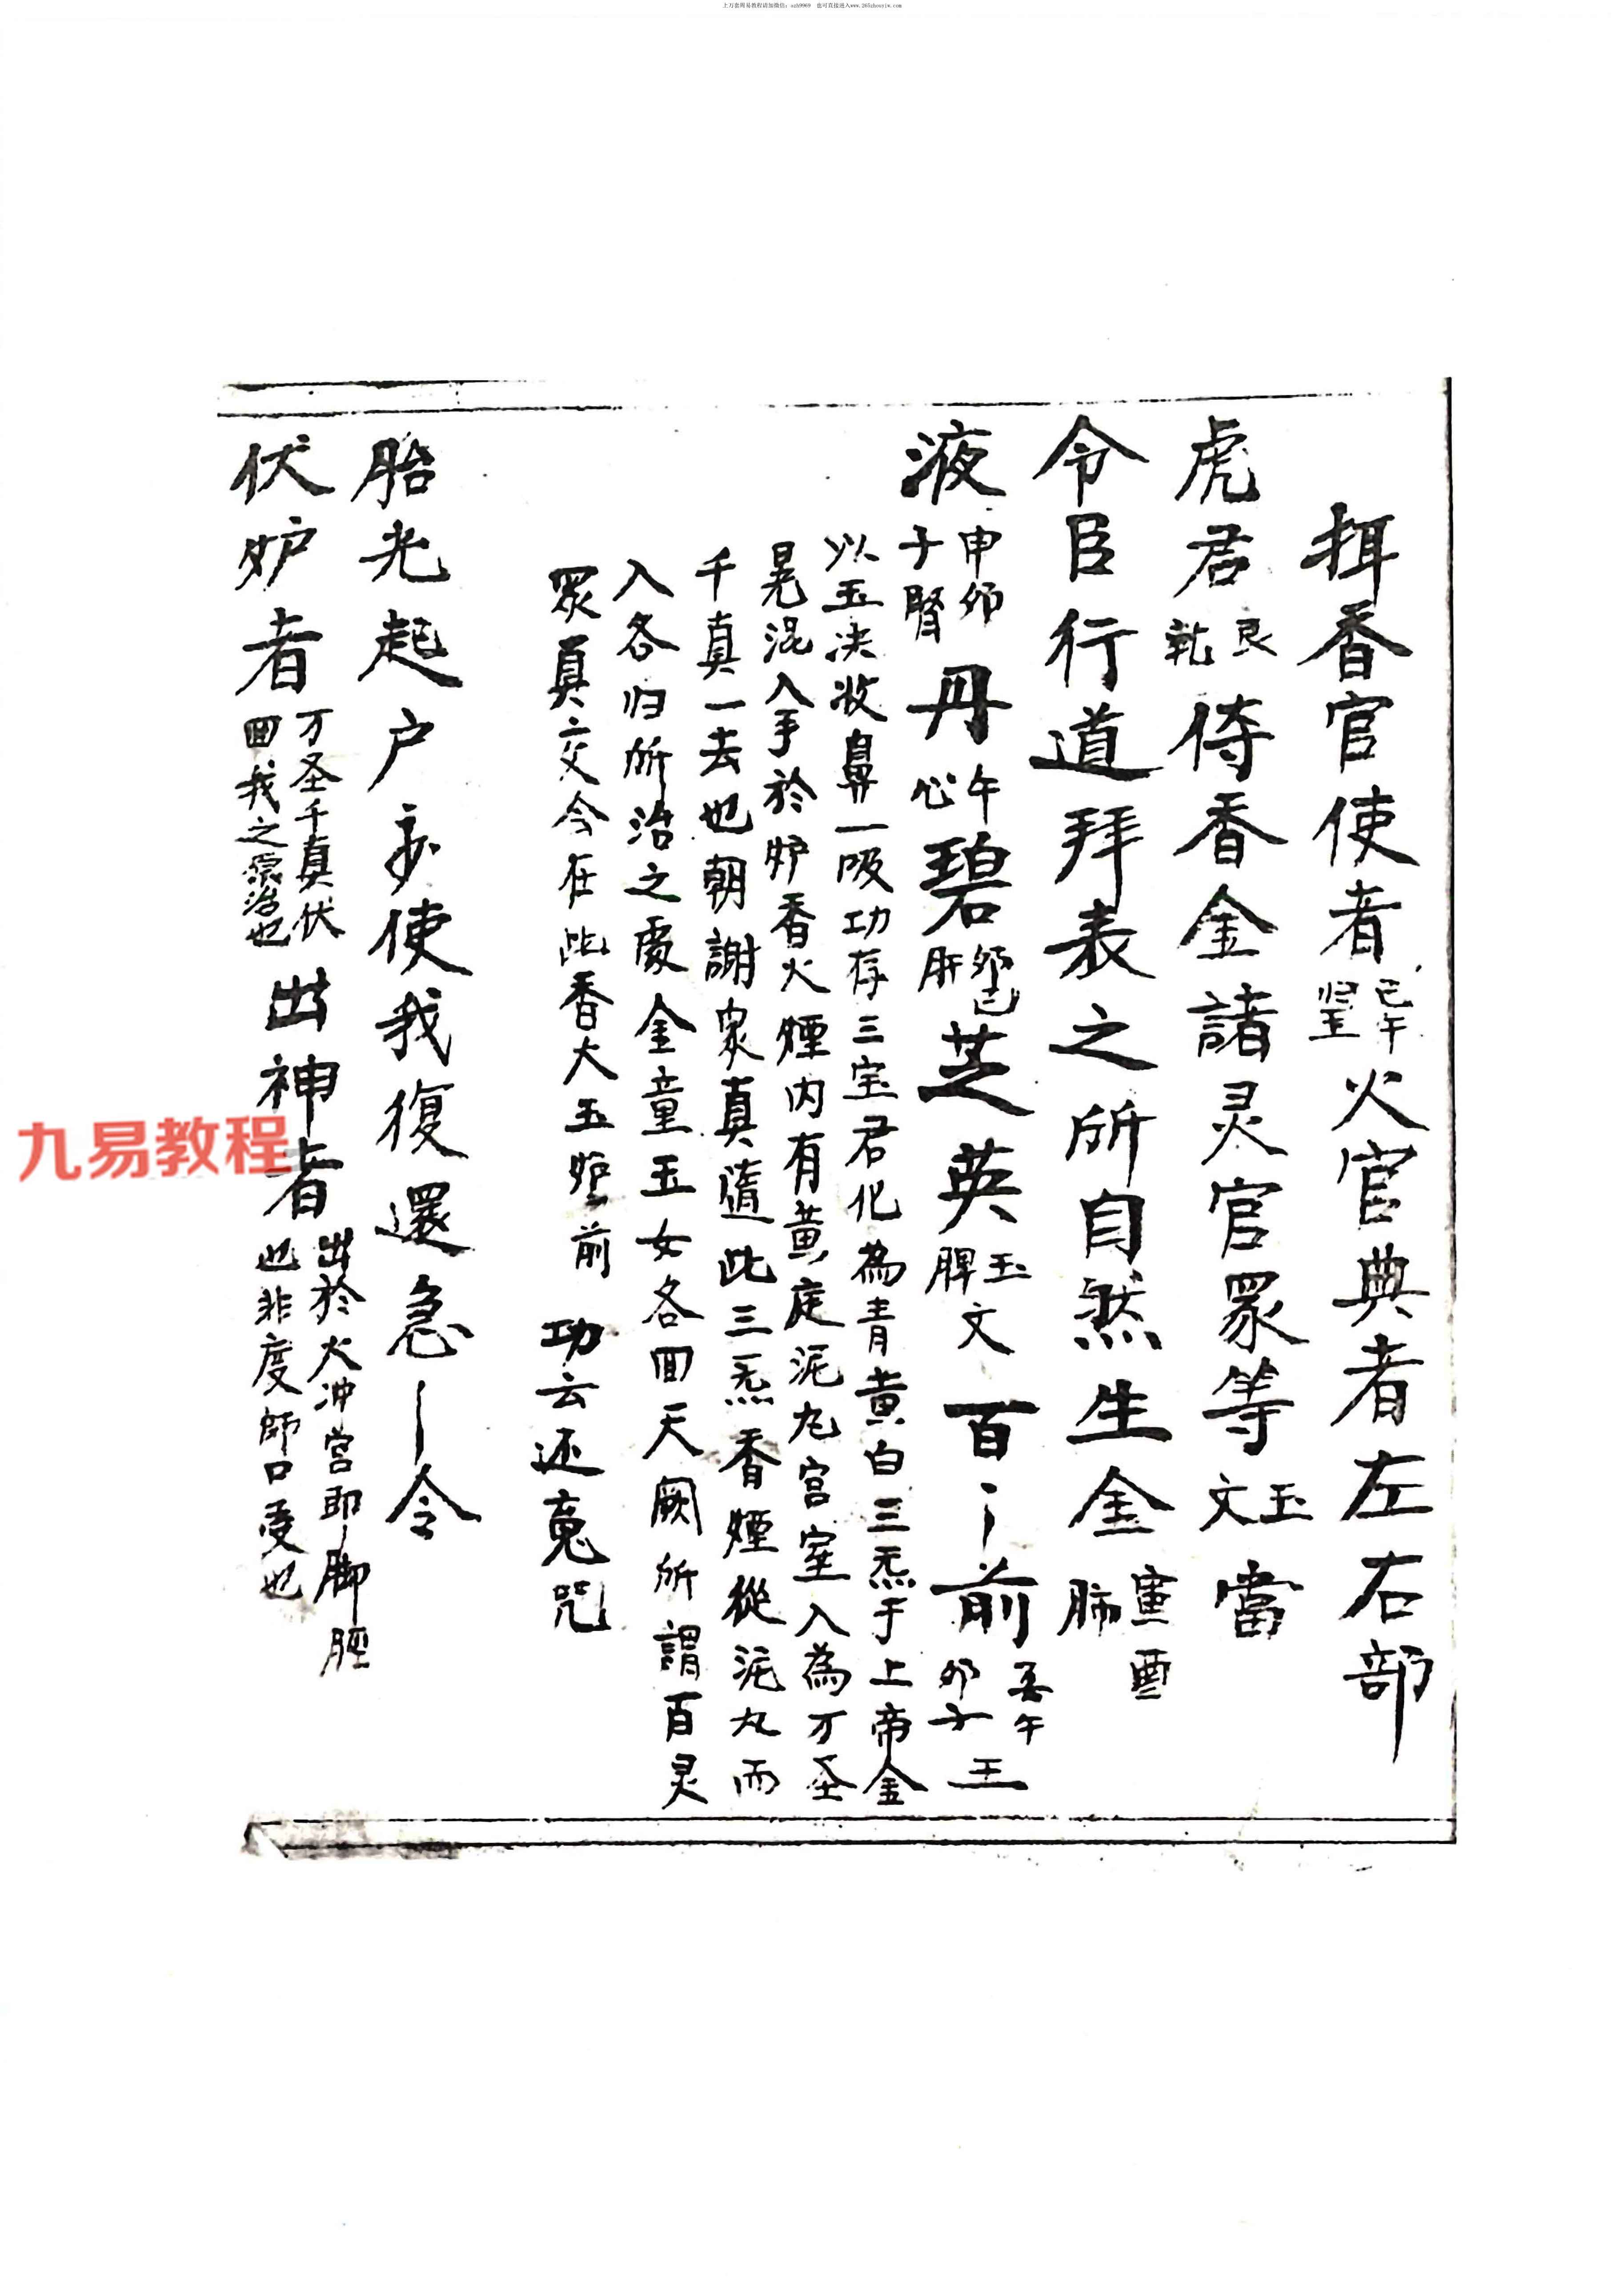 上万套周易教程请加微信：szh9969 也可直接进入www.265zhouyiw.com
揖香官使者巳午火官典者左右部
虎君艮乾侍香金諸灵官眾等玉文當
令臣行道拜表之所自然生金肺
液申卯子腎丹午心碧卯巳肝芝英玉文脾百〻前
以玉决收鼻一吸功存三宝君化為青黄白三炁于上帝金
晃混入手於炉香火煙内有黄庭泥丸宫室入為万圣
千真一去也朝謝眾真随此三炁香煙從泥丸而
入各归所治之處金童玉女各回天闕所謂百灵
眾真交今在此香火玉炉前 功云还魂咒
胎光起户 使我復還急〻令
伏炉者万圣千真伏回我之 治也出神者出於火冲宫即脚胫也非度師口受也
九易教程